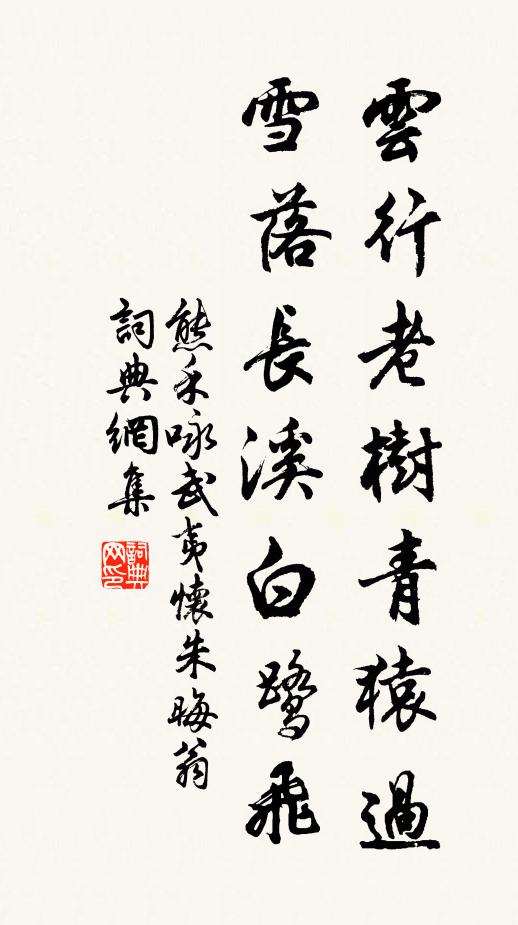 雲行老樹青猿過
雪落長溪白鷺飛
熊禾咏武夷懷朱晦翁
詞典網集
詞典网印